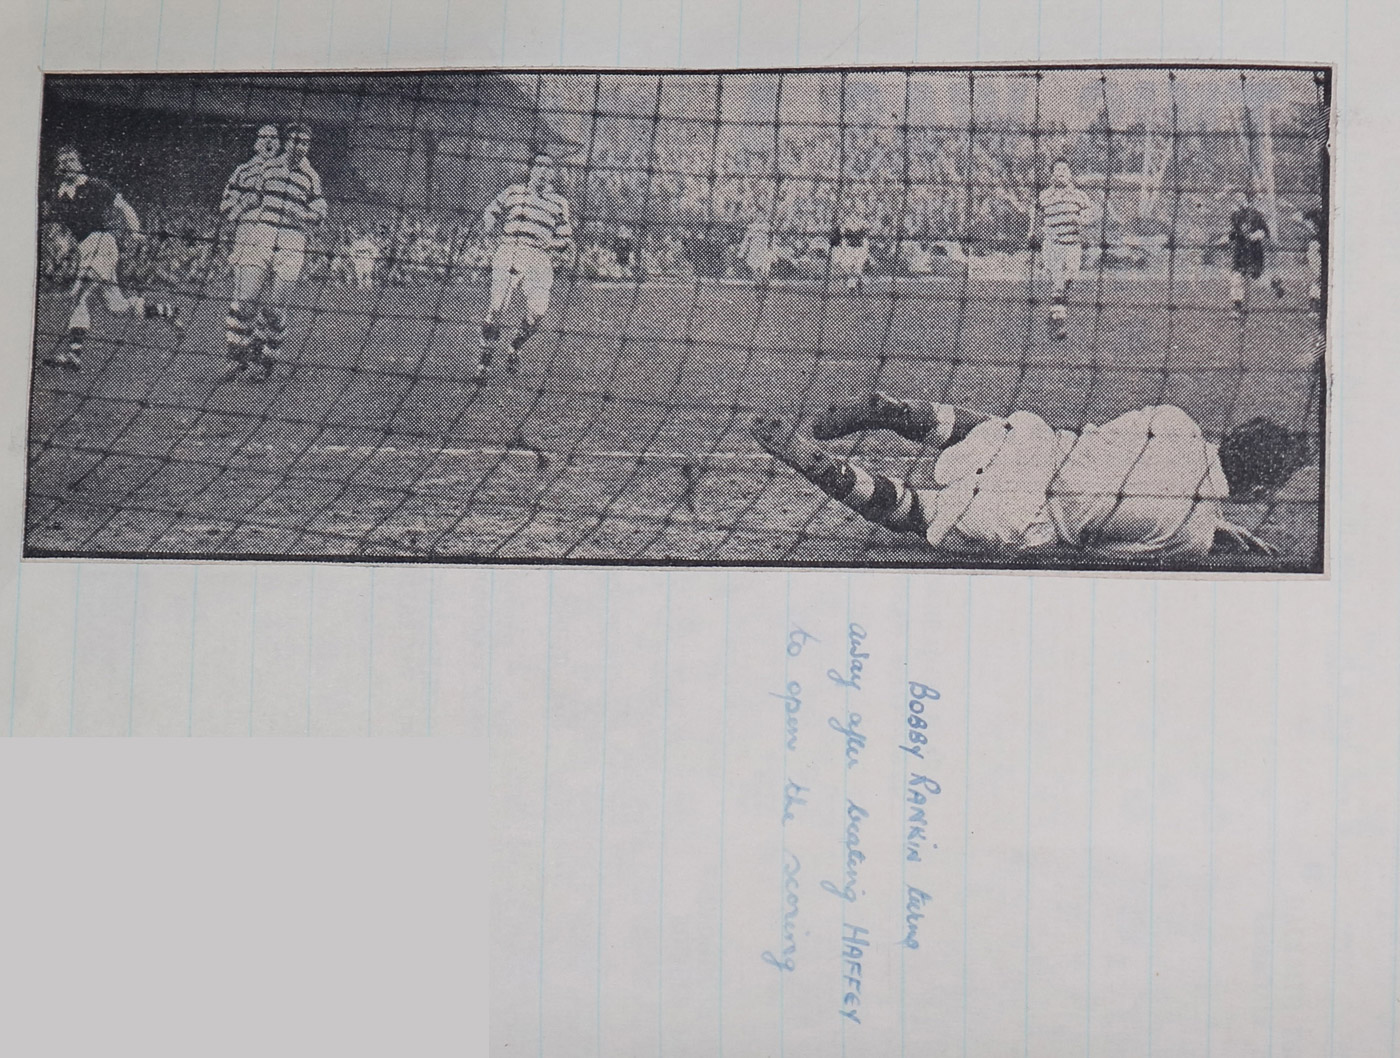 BOBBY RANKIN turns
away after beating HAFFEY
to open the scoring